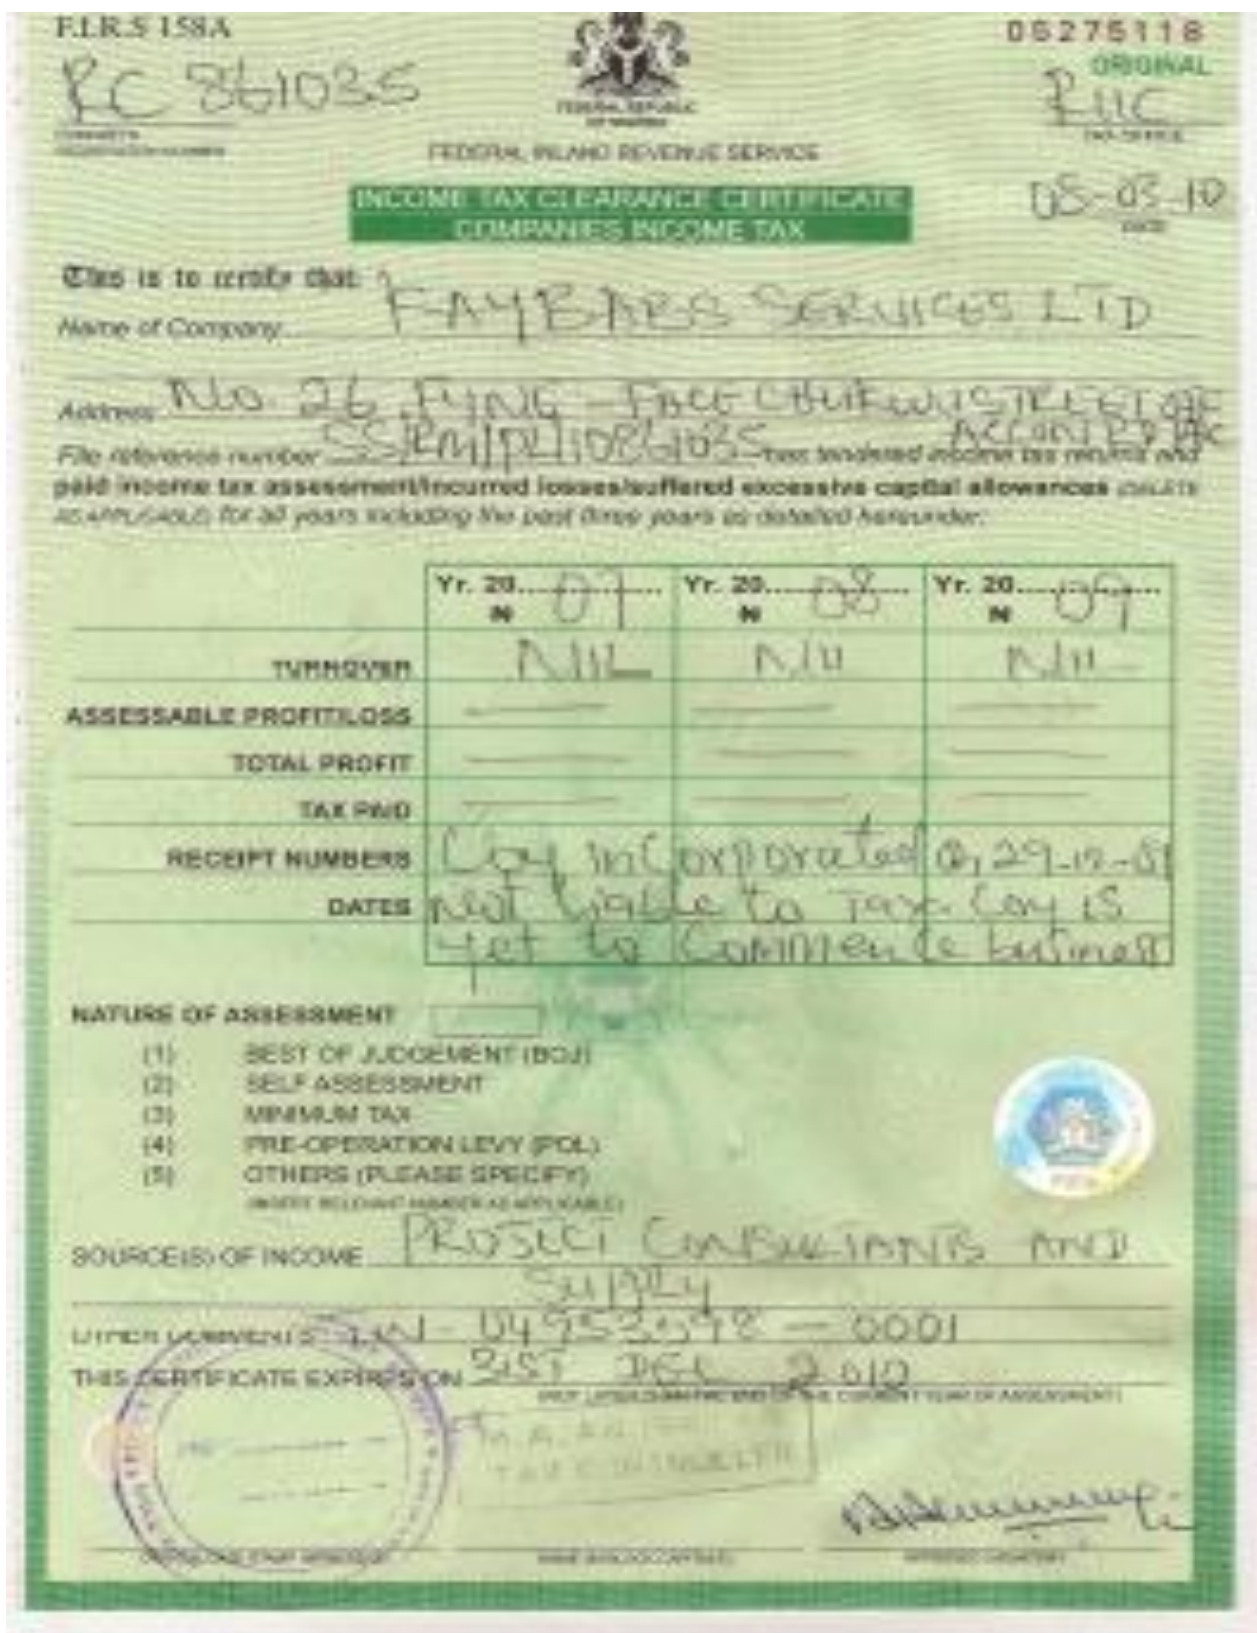 F.I.R.S 158A
05275118
ORIGINAL
RC 861035
COMPANY'S
REGISTRATION NUMBER
FEDERAL REPUBLIC
OF NIGERIA
TAX OFFICE
FEDERAL INLAND REVENUE SERVICE
INCOME TAX CLEARANCE CERTIFICATE
COMPANIES INCOME TAX
05-03-10
DATE
This is to certify that:
Name of Company FAYBABS SERVICES LTD
Address No. 26, STREET
File reference number has tendered income tax returns and
paid income tax assessment/incurred losses/suffered excessive capital allowances (DELETE
AS APPLICABLE) for all years including the past three years as detailed hereunder:
Yr. 20 07 Yr. 20 08 Yr. 20 09
₦ ₦ ₦
TURNOVER NIL Nil NIL
ASSESSABLE PROFIT/LOSS
TOTAL PROFIT
TAX PAID
RECEIPT NUMBERS Coy incorporated
DATES not liable to Tax. Coy is
yet to Commence business
NATURE OF ASSESSMENT
(1) BEST OF JUDGEMENT (BOJ)
(2) SELF ASSESSMENT
(3) MINIMUM TAX
(4) PRE-OPERATION LEVY (POL)
(5) OTHERS (PLEASE SPECIFY)
(INSERT RELEVANT NUMBER AS APPLICABLE)
SOURCE(S) OF INCOME PROJECT CONSULTANTS AND
SUPPLY
OTHER COMMENTS TIN - 0001
THIS CERTIFICATE EXPIRES ON 31ST DEC 2010
(NOT LATER THAN THE END OF THE CURRENT YEAR OF ASSESSMENT)
NAME (IN BLOCK CAPITALS)